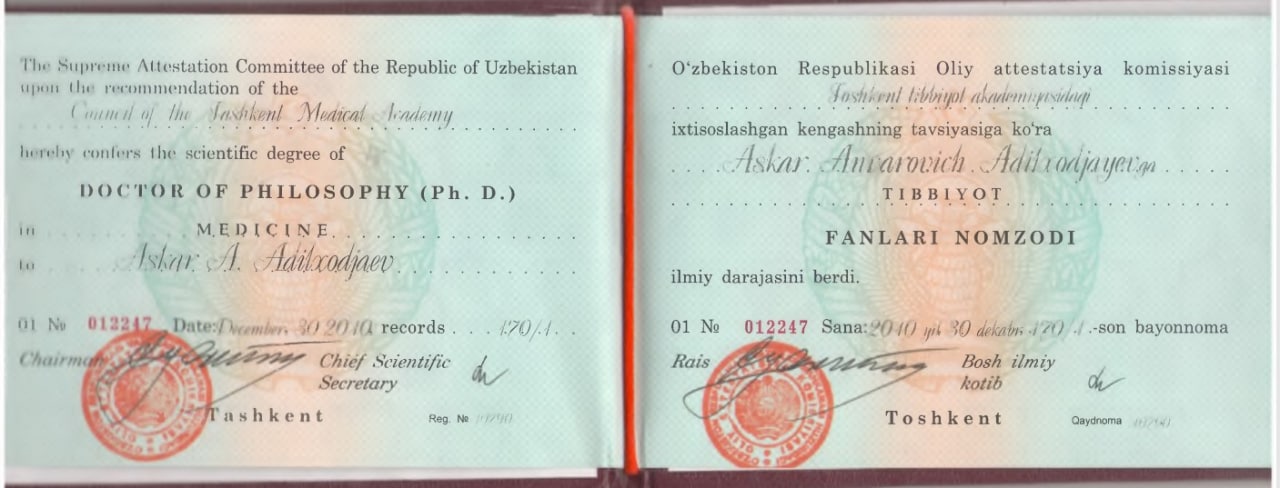 The Supreme Attestation Committee of the Republic of Uzbekistan
upon the recommendation of the
Council of the Tashkent Medical Academy
hereby confers the scientific degree of
DOCTOR OF PHILOSOPHY (Ph. D.)
in MEDICINE
to Askar A. Adilxodjaev
01 № 012247 Date: December 30 2010 records 170/1.
Chairman Chief Scientific
Secretary
Tashkent Reg. №
O‘zbekiston Respublikasi Oliy attestatsiya komissiyasi
Toshkent tibbiyot akademiyasidagi
ixtisoslashgan kengashning tavsiyasiga ko‘ra
Askar Anvarovich Adilxodjayevga
TIBBIYOT
FANLARI NOMZODI
ilmiy darajasini berdi.
01 № 012247 Sana: 2010 yil 30 dekabr 170/1.-son bayonnoma
Rais Bosh ilmiy
kotib
Toshkent Qaydnoma